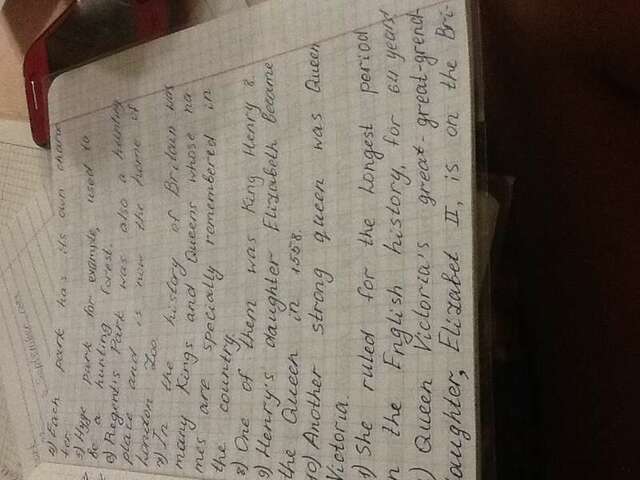 September
4) Each park has its own charac
ter.
5) Hyge park for example, used to
be a hunting forest.
6) Regent's Park was also a hunting
place and is now the home of
London Zoo.
7) In the history of Britain was
many Kings and Queens whose na
mes are specially remembered in
the country.
8) One of them was King Henry 8.
9) Henry's daughter Elizabeth Became
the Queen in 1558.
10) Another strong queen was Queen
Victoria.
1) She ruled for the longest period
n the English history, for 64 years
) Queen Victoria's great-great-grend-
aughter, Elizabet II, is on the Bri-